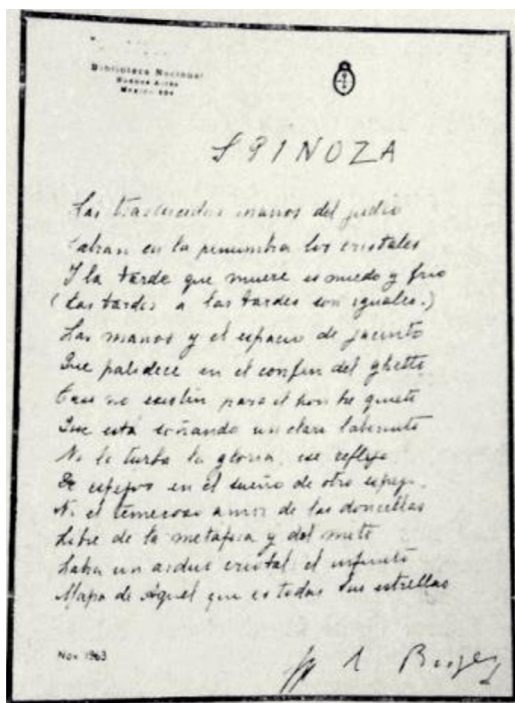 Biblioteca Nacional
Buenos Aires
México 564
SPINOZA
Las traslúcidas manos del judío
Labran en la penumbra los cristales
Y la tarde que muere es miedo y frío
(Las tardes a las tardes son iguales.)
Las manos y el espacio de jacinto
Que palidece en el confín del ghetto
Casi no existen para el hombre quieto
Que está soñando un claro laberinto
No lo turba la gloria, ese reflejo
De espejos en el sueño de otro espejo,
Ni el temeroso amor de las doncellas
Libre de la metáfora y del mito
Labra un arduo cristal: el infinito
Mapa de Aquel que es todas sus estrellas
Nov 1963
Borges